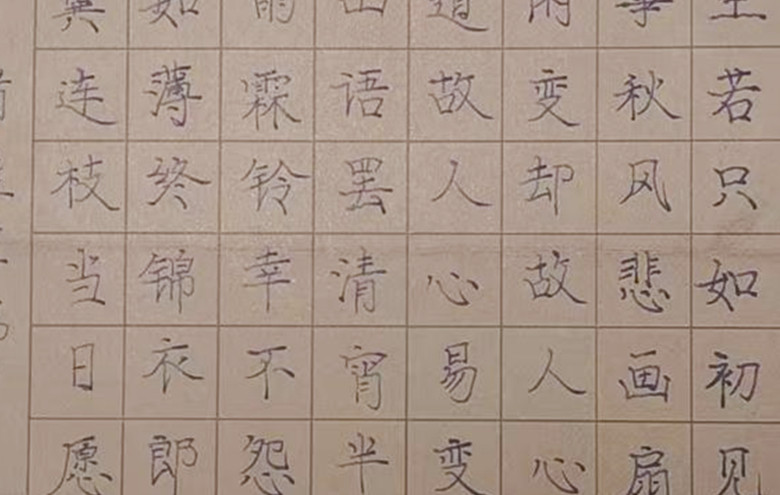 生若只如初见
事秋风悲画扇
闲变却故人心
道故人心易变
山语罢清宵半
雨霖铃幸不怨
如薄终锦衣郎
翼连枝当日愿